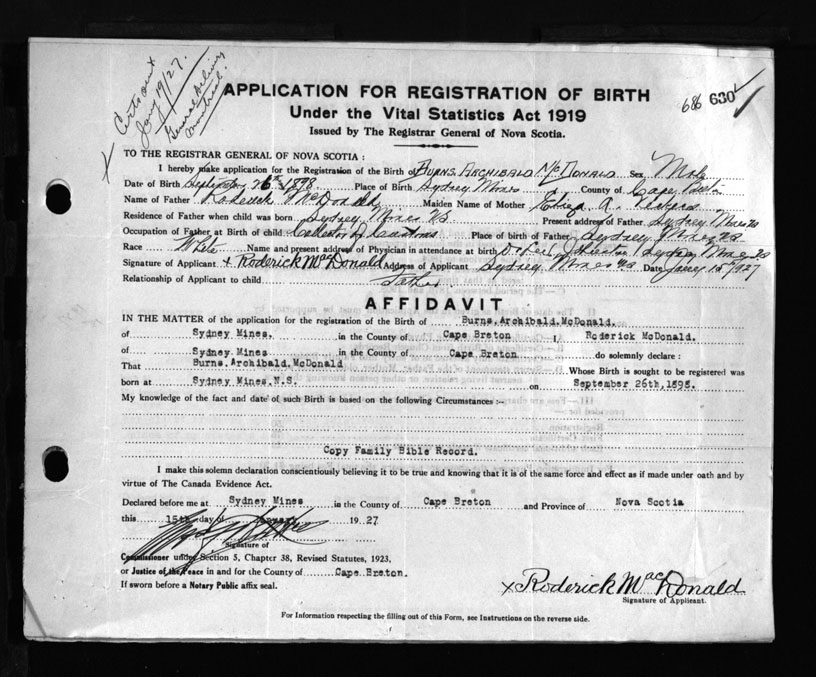 Jany 19/27.
General Delivery
Montreal.
APPLICATION FOR REGISTRATION OF BIRTH
Under the Vital Statistics Act 1919
Issued by The Registrar General of Nova Scotia.
686 630
TO THE REGISTRAR GENERAL OF NOVA SCOTIA :
I hereby make application for the Registration of the Birth of Burns Archibald McDonald Sex Male
Date of Birth September 26th 1898 Place of Birth Sydney Mines County of Cape Breton
Name of Father Roderick McDonald Maiden Name of Mother Eliza A.
Residence of Father when child was born Sydney Mines NS Present address of Father Sydney Mines
Occupation of Father at Birth of child Collector of Customs Place of birth of Father Sydney Mines
Race White Name and present address of Physician in attendance at birth Sydney Mines
Signature of Applicant x Roderick MacDonald Address of Applicant Sydney Mines Date Jany 15th 1927
Relationship of Applicant to child Father
AFFIDAVIT
IN THE MATTER of the application for the registration of the Birth of Burns.Archibald.McDonald.
of Sydney Mines. in the County of Cape Breton I, Roderick McDonald.
of Sydney Mines in the County of Cape Breton do solemnly declare :
That Burns.Archibald.McDonald Whose Birth is sought to be registered was
born at Sydney Mines.N.S. on September 26th,1898.
My knowledge of the fact and date of such Birth is based on the following Circumstances :–
Copy Family Bible Record.
I make this solemn declaration conscientiously believing it to be true and knowing that it is of the same force and effect as if made under oath and by
virtue of The Canada Evidence Act.
Declared before me at Sydney Mines in the County of Cape Breton and Province of Nova Scotia
this 15th day of January 1927
Signature of
Commissioner under Section 5, Chapter 38, Revised Statutes, 1923,
or Justice of the Peace in and for the County of Cape Breton.
If sworn before a Notary Public affix seal.
x Roderick MacDonald
Signature of Applicant.
For Information respecting the filling out of this Form, see Instructions on the reverse side.